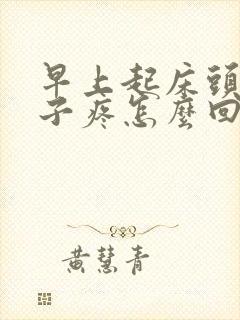 早上起床頭
子疼怎麼回
黃慧青